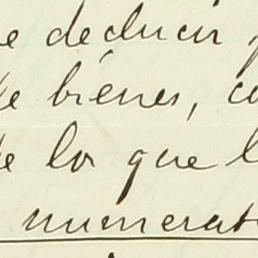 e deducir
de bienes, co
de lo que l
numerat